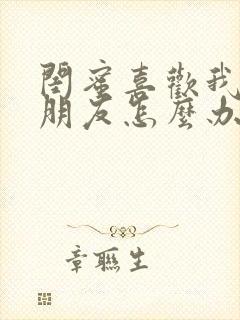 閨蜜喜歡我
朋友怎麼办
章聯生